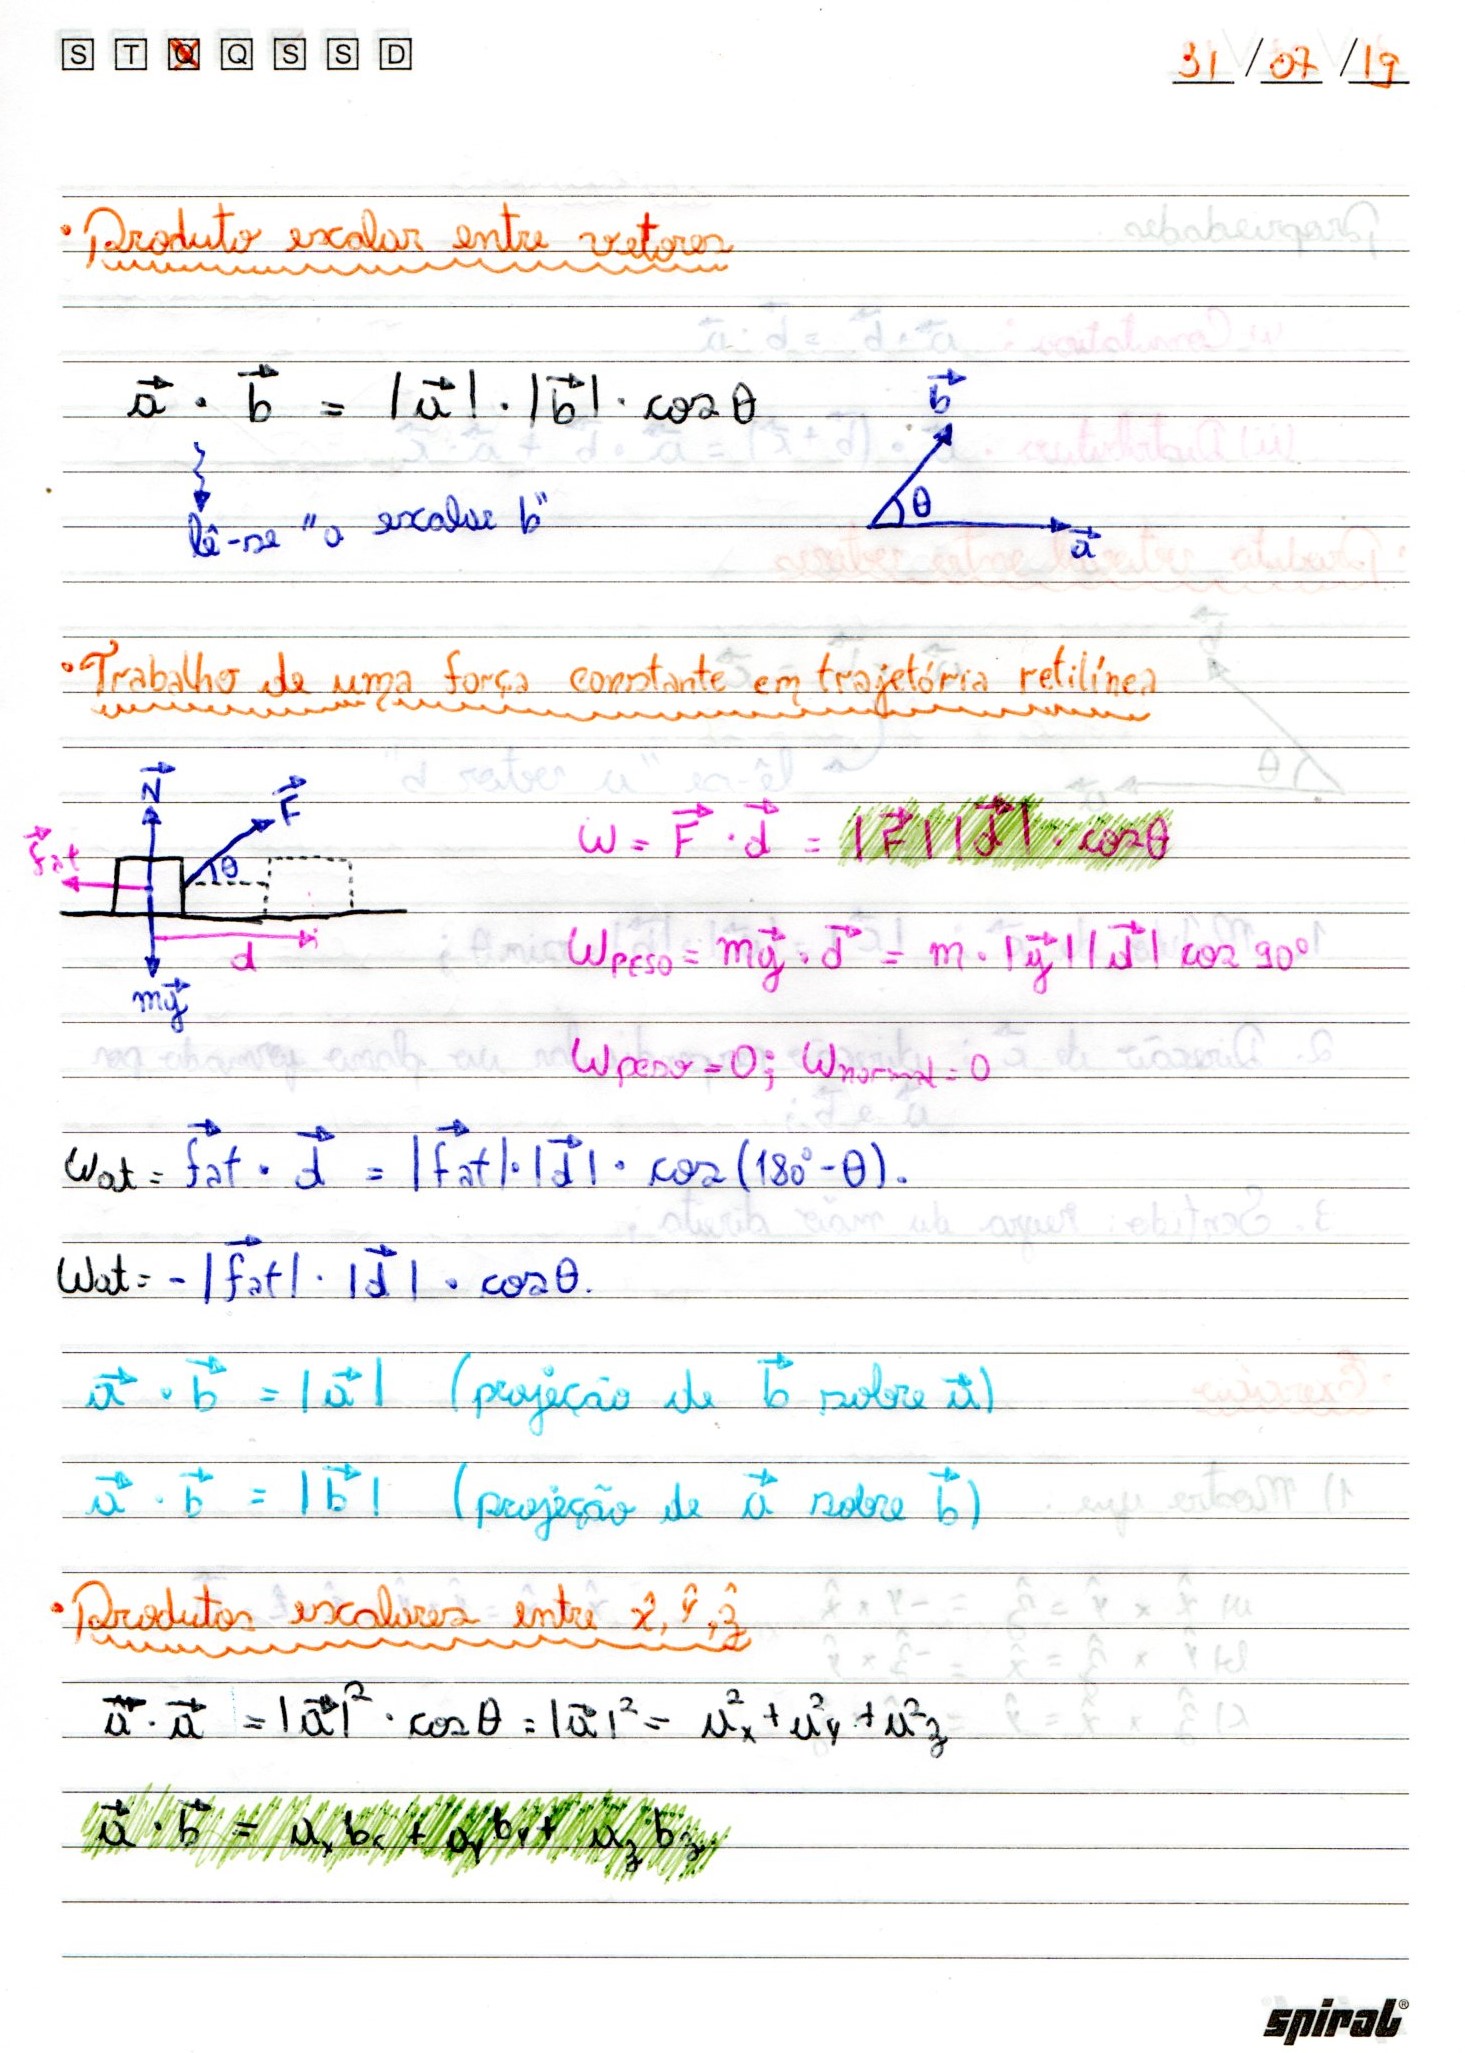 S T Q Q S S D 31/07/19
• Produto escalar entre vetores
a⃗ · b⃗ = |a⃗| · |b⃗| · cos θ
b⃗
θ
a⃗
lê-se "a escalar b"
• Trabalho de uma força constante em trajetória retilínea
N⃗
F⃗
f⃗at
θ
d
mg⃗
W = F⃗ · d⃗ = |F⃗| |d⃗| · cos θ
Wpeso = mg⃗ · d⃗ = m · |g⃗| |d⃗| cos 90°
Wpeso = 0; Wnormal = 0
Wat = f⃗at · d⃗ = |f⃗at| · |d⃗| · cos (180° - θ).
Wat = - |f⃗at| · |d⃗| · cos θ.
a⃗ · b⃗ = |a⃗| (projeção de b⃗ sobre a⃗)
a⃗ · b⃗ = |b⃗| (projeção de a⃗ sobre b⃗)
• Produtos escalares entre x̂, ŷ, ẑ
a⃗ · a⃗ = |a⃗|² · cos θ = |a⃗|² = a²x + a²y + a²z
a⃗ · b⃗ = axbx + ayby + azbz
spiral®